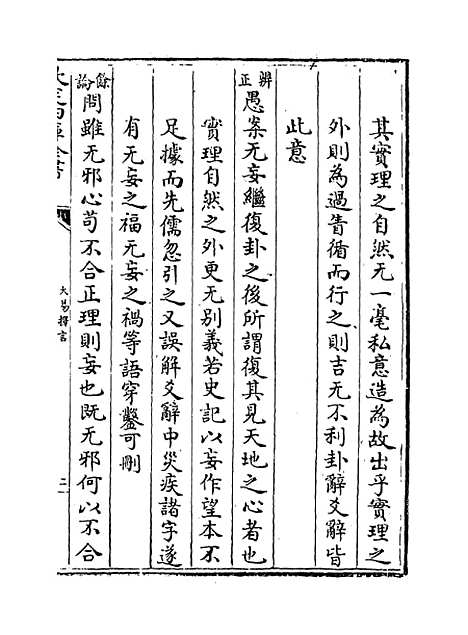 其實理之自然无一毫私意造為故出乎實理之
外則為過眚循而行之則吉无不利卦辭爻辭皆
此意
辨正
愚案无妄繼復卦之後所謂復其見天地之心者也
實理自然之外更无別義若史記以妄作望本不
足據而先儒忽引之又誤解爻辭中災疾諸字遂
有无妄之福无妄之禍等語穿鑿可刪
餘論
問雖无邪心苟不合正理則妄也既无邪何以不合
大易擇言